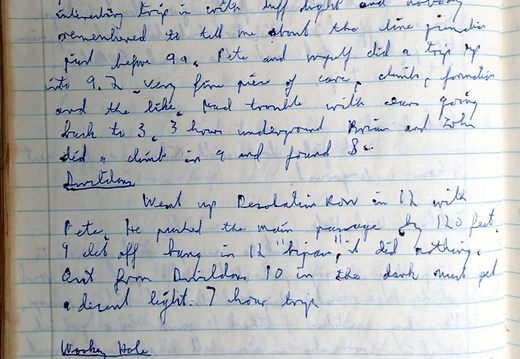 interesting trip in with duff light and nobody
remembered to tell me about the line
just before 9a. Pete and myself did a trip up
into 9.2 very fine piece of cave, climb, formation
and the like, had trouble with ears going
back to 3, 3 hours underground Brian and John
did a climb in 9 and found 8.
Swildons
Went up Desolation Row in 12 with
Pete. He pushed the main passage by 120 feet.
I let off bang in 12 "hipan", it did nothing.
Out from Swildons 10 in the dark must get
a decent light. 7 hour trip
Wookey Hole